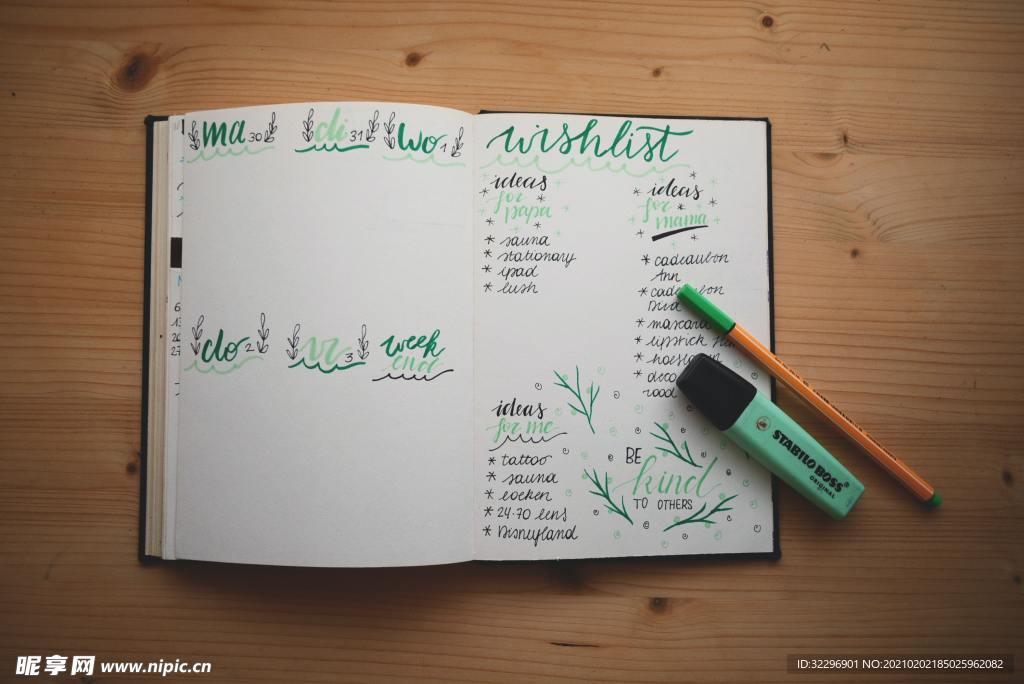 ma 30
di 31
wo 1
do 2
vr 3
week
end
wishlist
ideas
for
papa
* sauna
* stationary
* ipad
* lush
ideas
for
mama
* cadeaubon
Ann
* mascara
* lipstick
* deco
rood
ideas
for me
* tattoo
* sauna
* boeken
* 24-70 lens
* Disneyland
BE
kind
TO OTHERS
STABILO BOSS
ORIGINAL
昵享网 www.nipic.cn
ID:32296901 NO:20210202185025962082